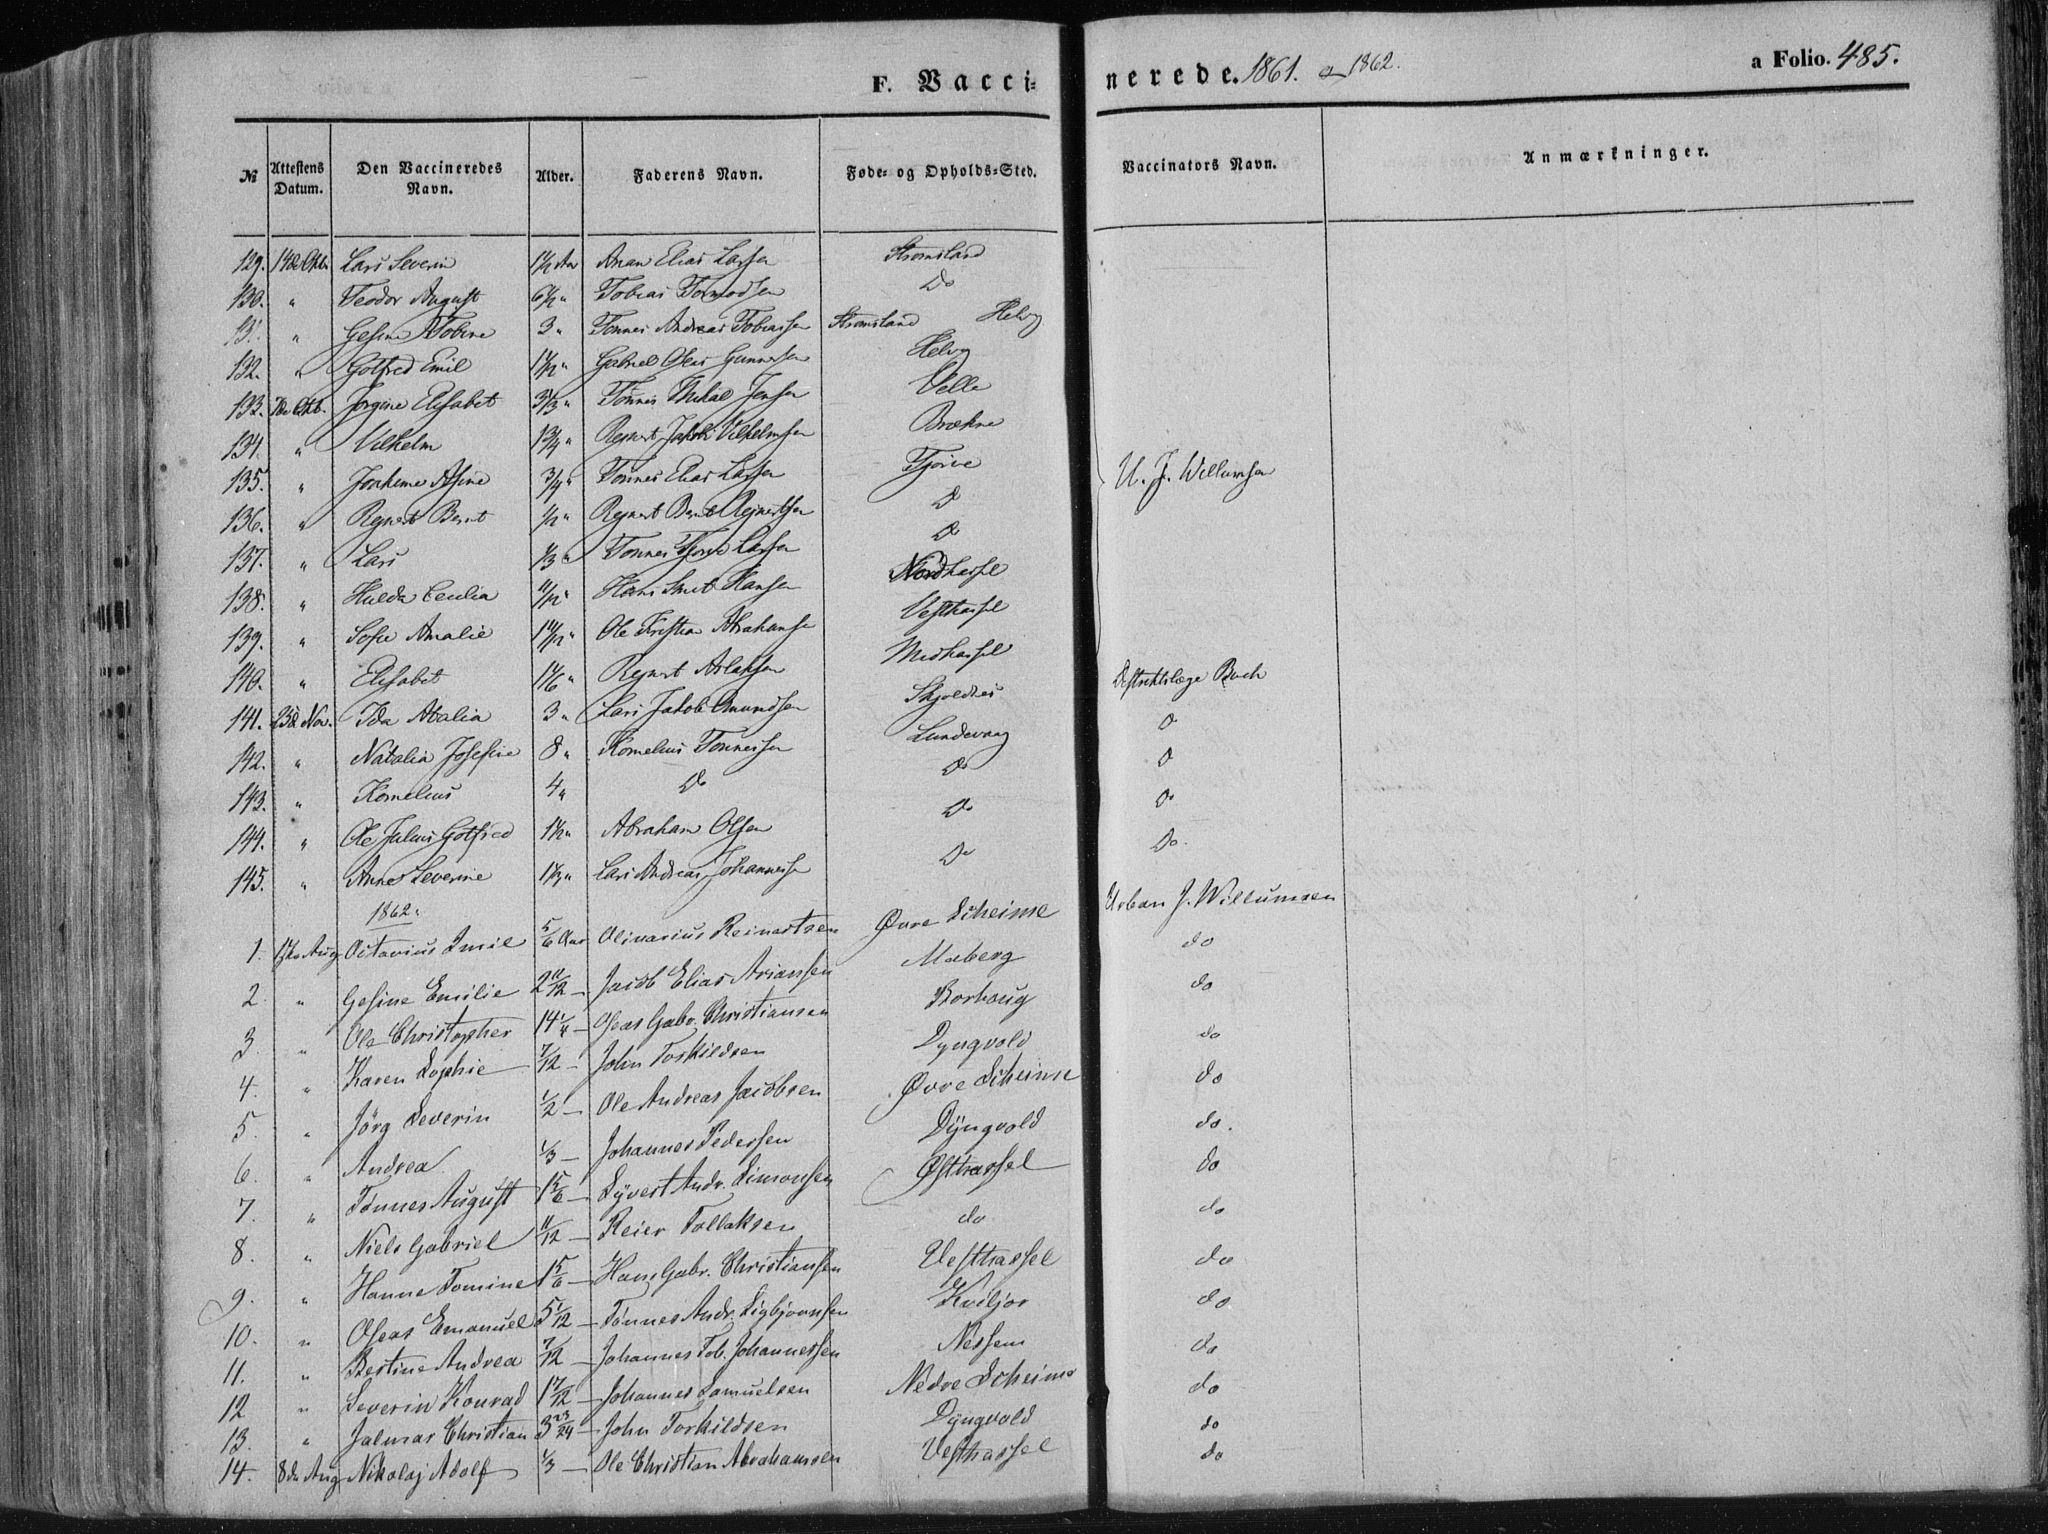 F. Vaccinerede. 1861. og 1862. a Folio. 485.
№ Attestens Datum. Den Vaccineredes Navn. Alder. Faderens Navn. Føde- og Opholds-Sted. Vaccinators Navn. Anmærkninger.
129. 14de Lars Severin 1 1/2 Aar Elias Larsen Stromsland
130. " Teodor August 6 1/2 " Tobias Tormodsen Do
131. " Gesine Tobine 3 " Tønnes Andreas Tobiassen Stromsland Helvig
132. " Gotfred Emil Gabriel Oseas Gunnersen Helvig
133. Jorgine Elisabet Tønnes Mikal Jensen Velle
134. " Vilhelm 1 3/4 " Reinert Jakob Vilhelmsen Brækne
135. " Joakime Asine 3/4 " Tønnes Elias Larsen Tjørve U. J. Willumsen
136. " Reinert Bernt 1/2 " Reinert Bernt Reinertsen Do
137. " Lars 1/3 " Tønnes Tjørve Larsen Do
138. " Hulda Cecilia 11/12 " Hans Smit Hansen Nordhassel
139. " Sofie Amalie Ole Kristian Abrahamsen Vesthassel
140. " Elisabet 1 1/6 " Reinert Aslaksen Midhassel Destriktslæge Buch
141. 23de Nov. Ida Atalia 3 " Lars Jakob Amundsen Skjoldnes Do
142. " Natalia Josefine 8 " Kornelius Tønnessen Lundevaag Do
143. " Kornelius 4 " Do Do Do
144. " Ole Julius Gotfred 1 1/2 " Abraham Olsen Do Do.
145. " Anne Severine 1 1/3 " Lars Andreas Johannesen Do
1862. Urban J. Willumsen
1. 17de Aug Octavius Emil 5/6 Aar Olivarius Reinartsen Øvre Scheime do
2. " Gesine Emilie 2 11/12 — Jacob Elias Ariansen Maberg do
3. " Ole Christopher 14 1/4 — Oseas Gabr. Christiansen Borhaug do
4. " Karen Sophie 7/12 — John Torkildsen Dyngvold do
5. " Jörg Severin 1/2 — Ole Andreas Jacobsen Øvre Scheime do.
6. " Andrea 1/3 — Johannes Pedersen Dÿngvold do
7. " Tönnes August 1 5/6 — Sÿvert Andr. Simonsen Østhassel do
8. " Niels Gabriel 11/12 — Reier Tollaksen do do
9. " Hanne Tomine 1 5/6 — Hans Gabr. Christiansen Vesthassel do
10. " Oseas Emanuel 5 1/12 — Tönnes Andr. Sigbjornsen Kviljor do
11. " Bestine Andrea 7/12 — Johannes Tob. Johannessen Nessem do
12 " Severin Konrad 1 7/12 — Johannes Samuelsen Nedre Scheime do
13. " Jalmar Christian 3 23/24 — John Torkildsen Dÿngvold do
14. 8de Aug Nikolaj Adolf 1/3 — Ole Christian Abrahamsen Vesthassel do